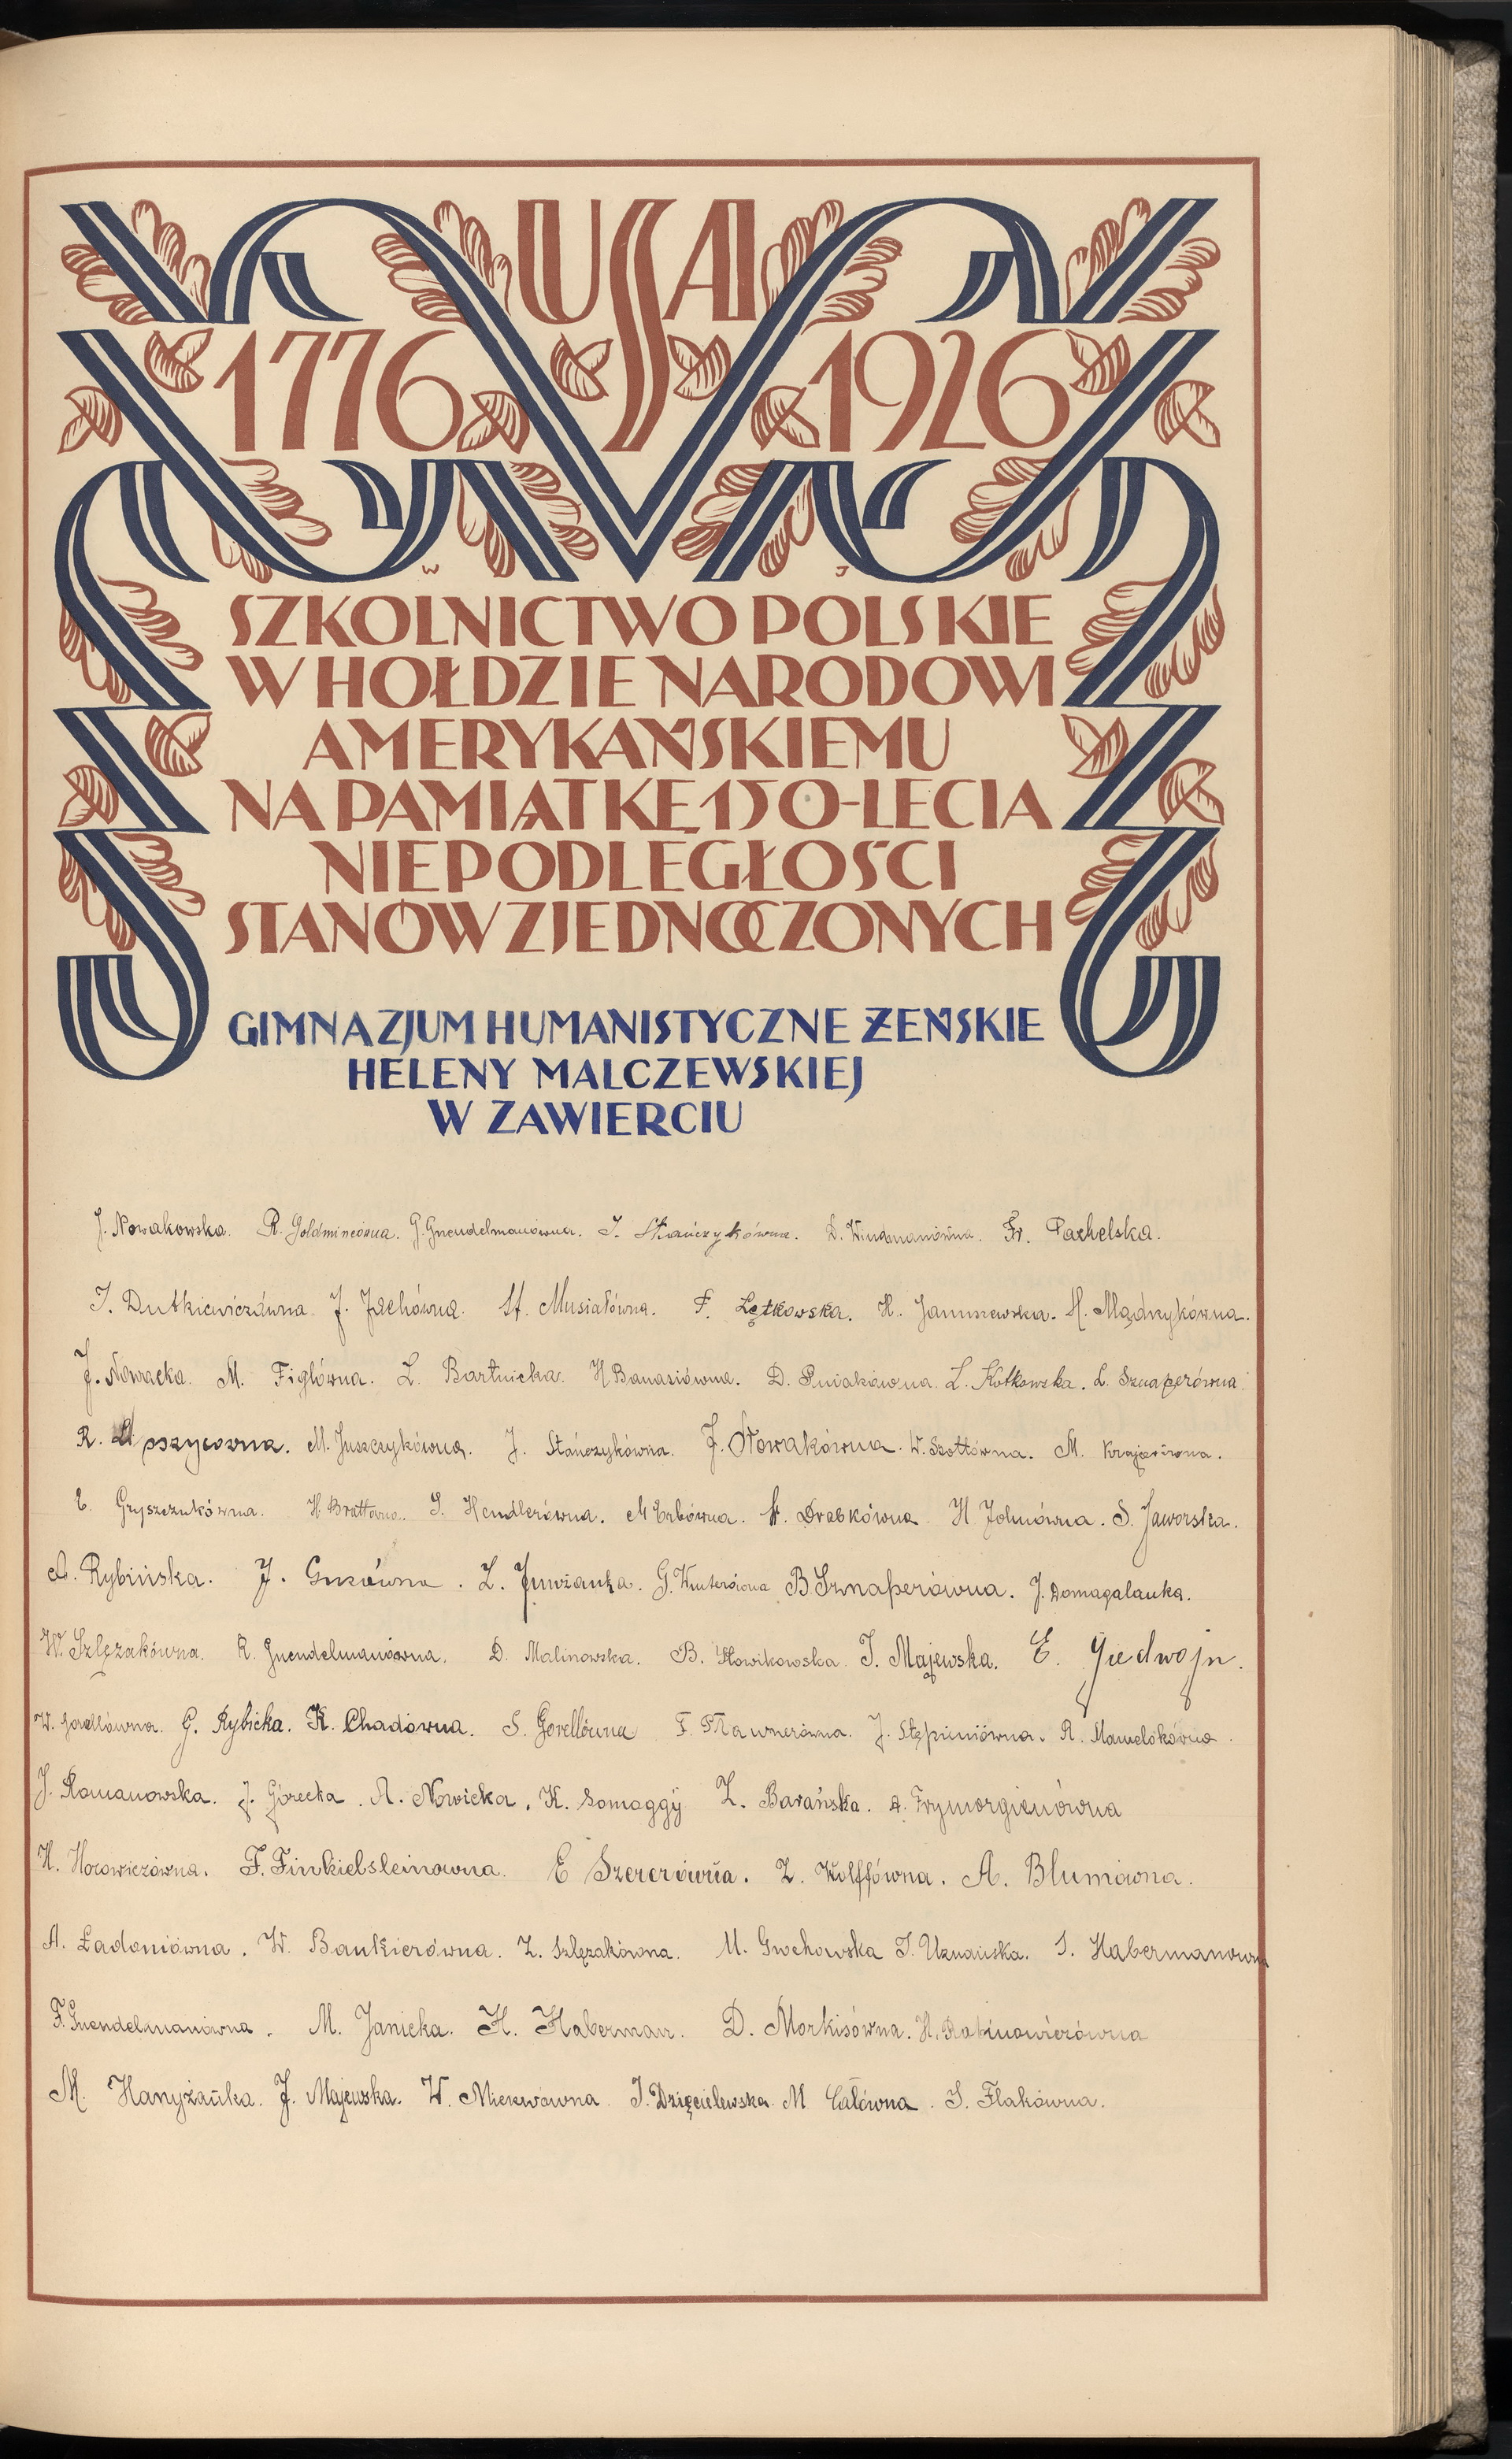 USA
1776 1926
W J
SZKOLNICTWO POLSKIE
W HOŁDZIE NARODOWI
AMERYKAŃSKIEMU
NA PAMIĄTKĘ 150-LECIA
NIEPODLEGŁOŚCI
STANÓW ZJEDNOCZONYCH
GIMNAZJUM HUMANISTYCZNE ŻEŃSKIE
HELENY MALCZEWSKIEJ
W ZAWIERCIU
J. Nowakowska. R. Goldmincówna. G. Gnendelmanówna. J. Stańczykówna. D. Windmanówna. Fr. Pachelska.
I. Dutkiewiczówna. J. Jachówna. St. Musiałówna. F. Lętkowska. H. Januszewska. H. Mądrzykówna.
J. Nowacka. M. Figlówna. L. Bartnicka. H Banasiówna. D. Pniakówna. L. Kotkowska. L. Sznaperówna.
R. M. Juszczykówna. J. Stańczykówna. J. Nowakówna. W. Szottówna. M.
E. Gryszczukówna. H. S. Hendlerówna. M Erbówna. Drabkówna H. S. Jaworska.
A. Rybińska. J. Guzówna. Z. G. Winterówna B Sznaperówna. J. Domagalanka.
W. Szlęzakówna. R. Gnendelmanówna. D. Malinowska. B. Słowikowska. I. Majewska. E. Giedwojn.
W. Gorellówna. G. Rybicka. K. Chadówna. S. Gorellówna F. J. Stępieniówna. R. Mamelokówna.
J. Romanowska. J. Górecka. A. Nowicka. K. Somaggÿ Z. Barańska. A. Frymorgienówna
H. Horowiczówna. F. Finkielsteinowna. E Szererówna. Z. Wolffówna. A. Blumówna.
A. Ładoniówna. W. Bankierówna. Z. Szlęzakówna. M. Gwchowska I. Uznańska. S. Habermanowna
F. Gnendelmanówna. M. Janicka. H. Haberman. D. Morkisówna. H. Rabinowiczówna
M. Hanyżanka. J. Majewska. W. I. Dzięcielewska. M. Całówna. S. Flakówna.